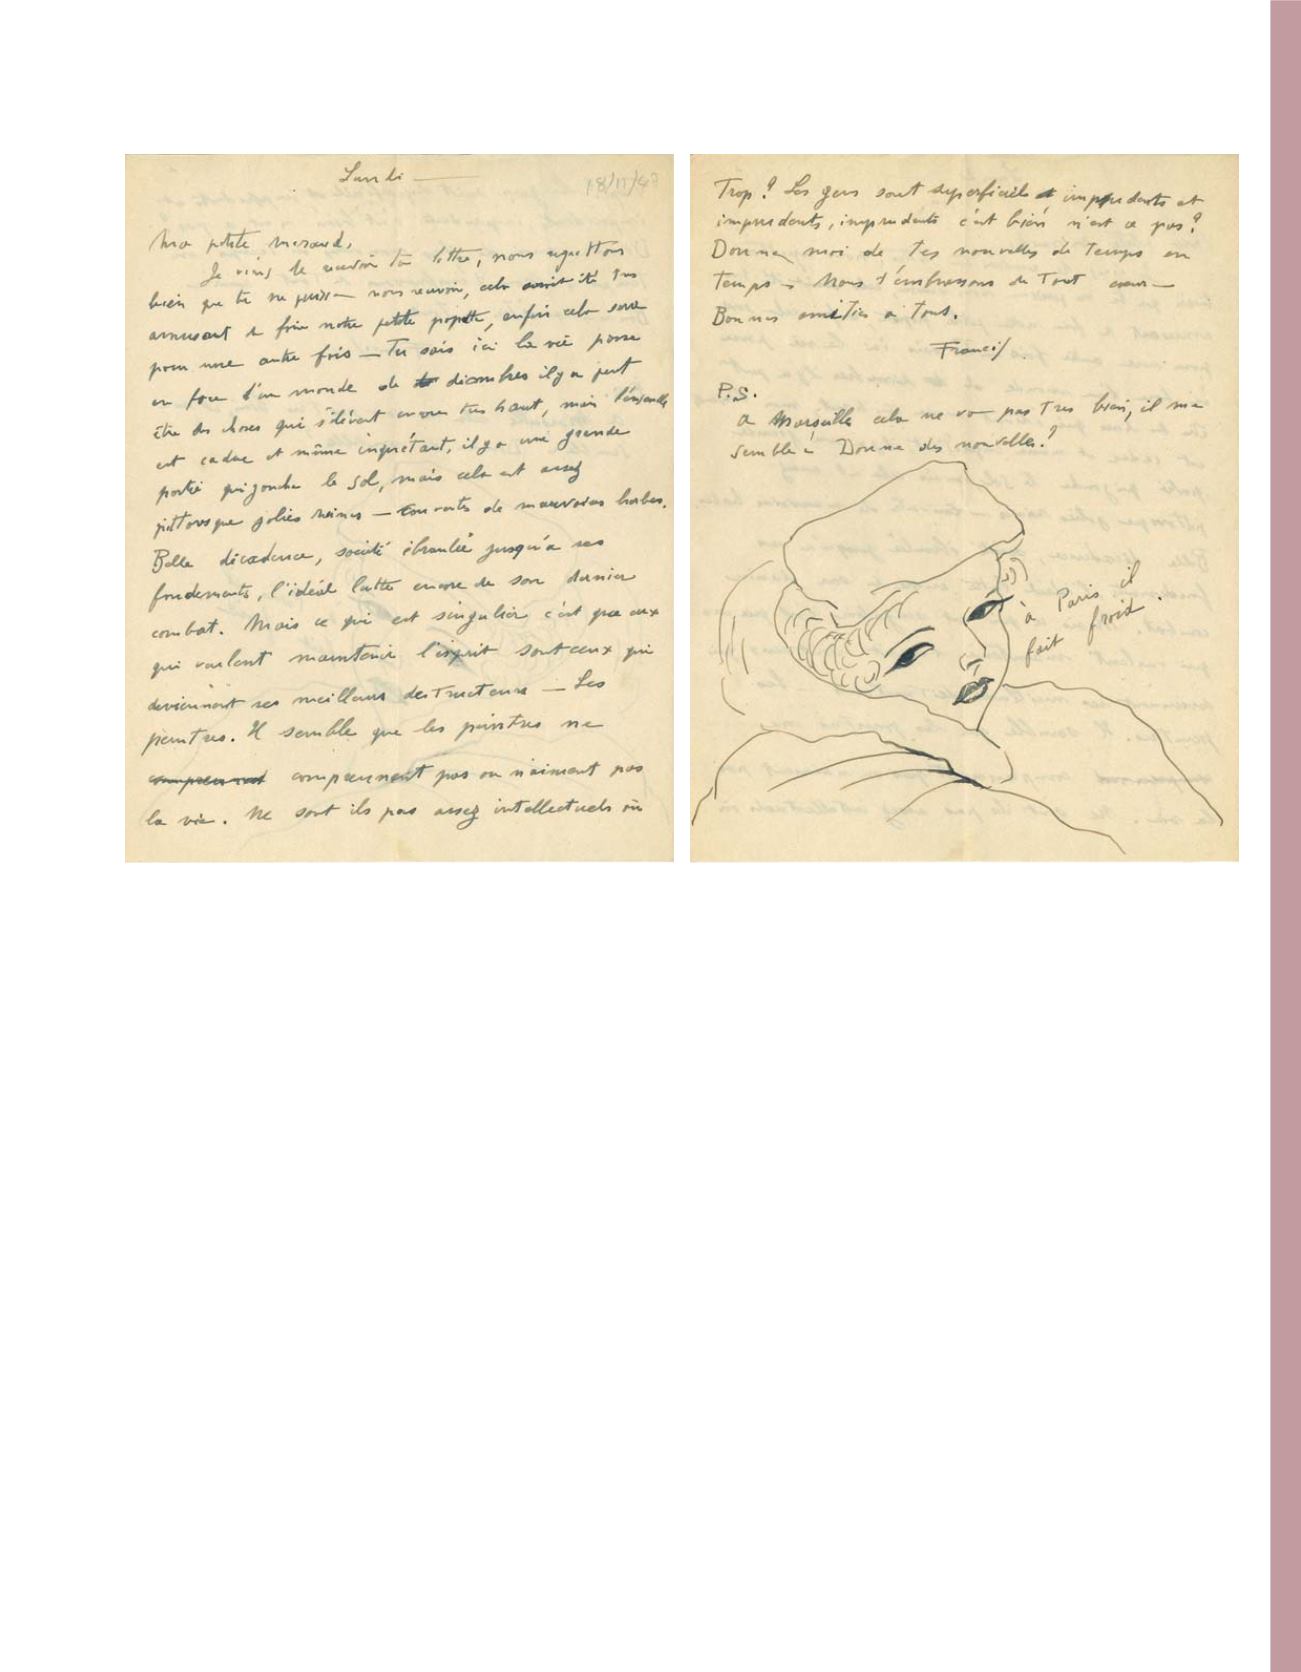 Lundi
18/11/4
Ma petite
Je viens de recevoir ta lettre, nous regrettons
bien que tu ne puisse nous revoir, cela aurait été
amusant de finir notre petite popotte, enfin cela sera
pour une autre fois — Tu sais ici la vie passe
en face d'un monde de décombres il y a peut
être des choses qui s'élèvent encore très haut, mais l'ensemble
est caduc et même inquiétant, il y a une grande
partie qui jonche le sol, mais cela est assez
pittoresque jolies ruines — couvertes de mauvaises herbes.
Belle décadence, société ébranlée jusqu'à ses
fondements, l'idéal lutte encore de son dernier
combat. Mais ce qui est singulier c'est que ceux
qui veulent maintenir l'esprit sont ceux qui
deviennent ses meilleurs destructeurs — Les
peintres. Il semble que les peintres ne
comprennent pas ou n'aiment pas
la vie. Ne sont ils pas assez intellectuels ou
Trop? Les gens sont superficiels et imprudents et
imprudents, imprudents c'est bien n'est ce pas?
Donne moi de tes nouvelles de temps en
temps — Nous t'embrassons de Tout coeur —
Bonnes amitiés à tous.
Francis
P.S.
a Marseille cela ne va pas Très bien, il me
semble? Donne des nouvelles?
à Paris il
fait froid.